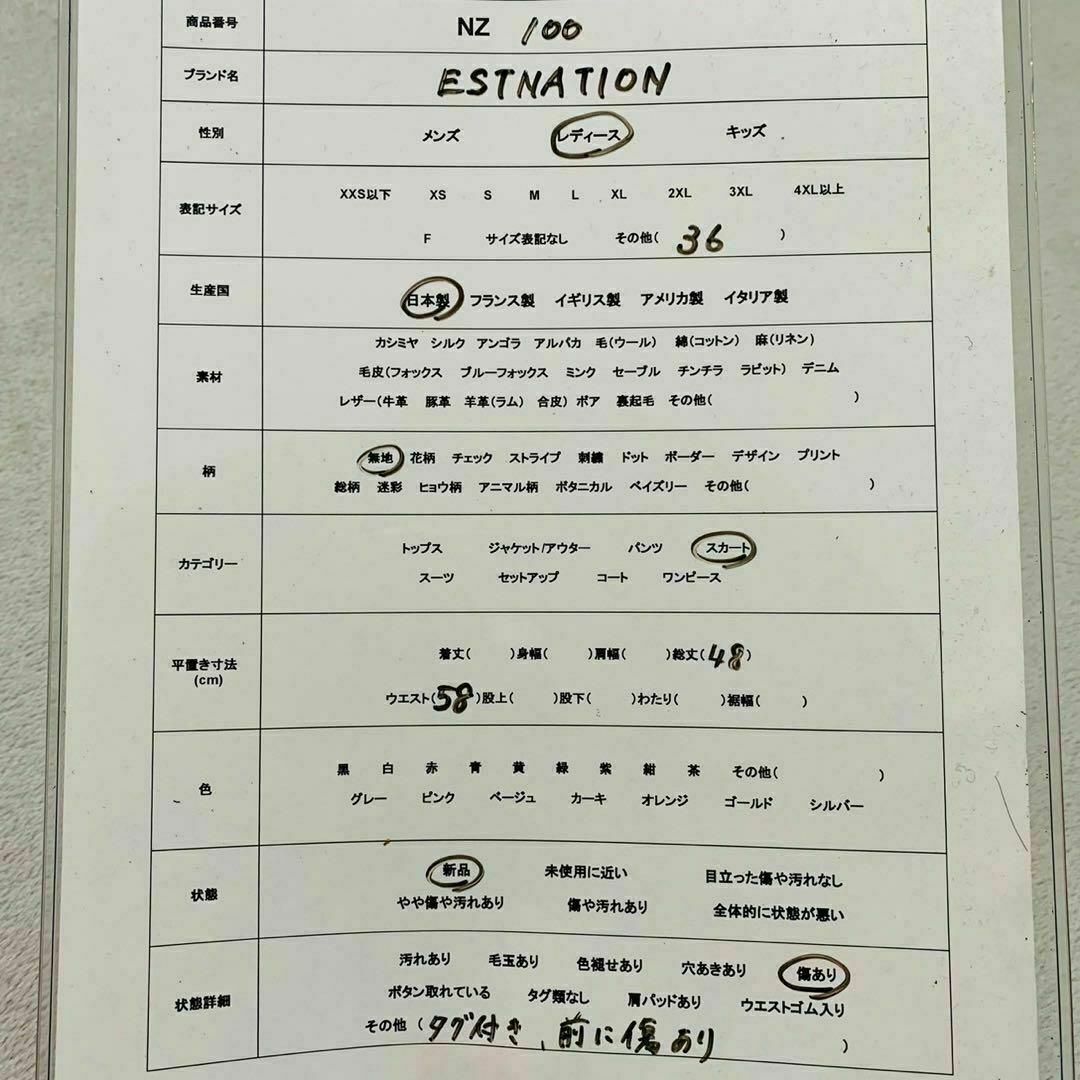 商品番号 NZ 100
ブランド名 ESTNATION
性別 メンズ レディース キッズ
XXS以下 XS S M L XL 2XL 3XL 4XL以上
表記サイズ
F サイズ表記なし その他( 36 )
生産国 日本製 フランス製 イギリス製 アメリカ製 イタリア製
カシミヤ シルク アンゴラ アルパカ 毛(ウール) 綿(コットン) 麻(リネン)
素材 毛皮(フォックス ブルーフォックス ミンク セーブル チンチラ ラビット) デニム
レザー(牛革 豚革 羊革(ラム) 合皮) ボア 裏起毛 その他( )
無地 花柄 チェック ストライプ 刺繍 ドット ボーダー デザイン プリント
柄
総柄 迷彩 ヒョウ柄 アニマル柄 ボタニカル ペイズリー その他( )
トップス ジャケット/アウター パンツ スカート
カテゴリー
スーツ セットアップ コート ワンピース
着丈( )身幅( )肩幅( )総丈(48)
平置き寸法
(cm)
ウエスト(58)股上( )股下( )わたり( )裾幅( )
黒 白 赤 青 黄 緑 紫 紺 茶 その他( )
色
グレー ピンク ベージュ カーキ オレンジ ゴールド シルバー
新品 未使用に近い 目立った傷や汚れなし
状態
やや傷や汚れあり 傷や汚れあり 全体的に状態が悪い
汚れあり 毛玉あり 色褪せあり 穴あきあり 傷あり
状態詳細 ボタン取れている タグ類なし 肩パッドあり ウエストゴム入り
その他 ( タグ付き、前に傷あり )